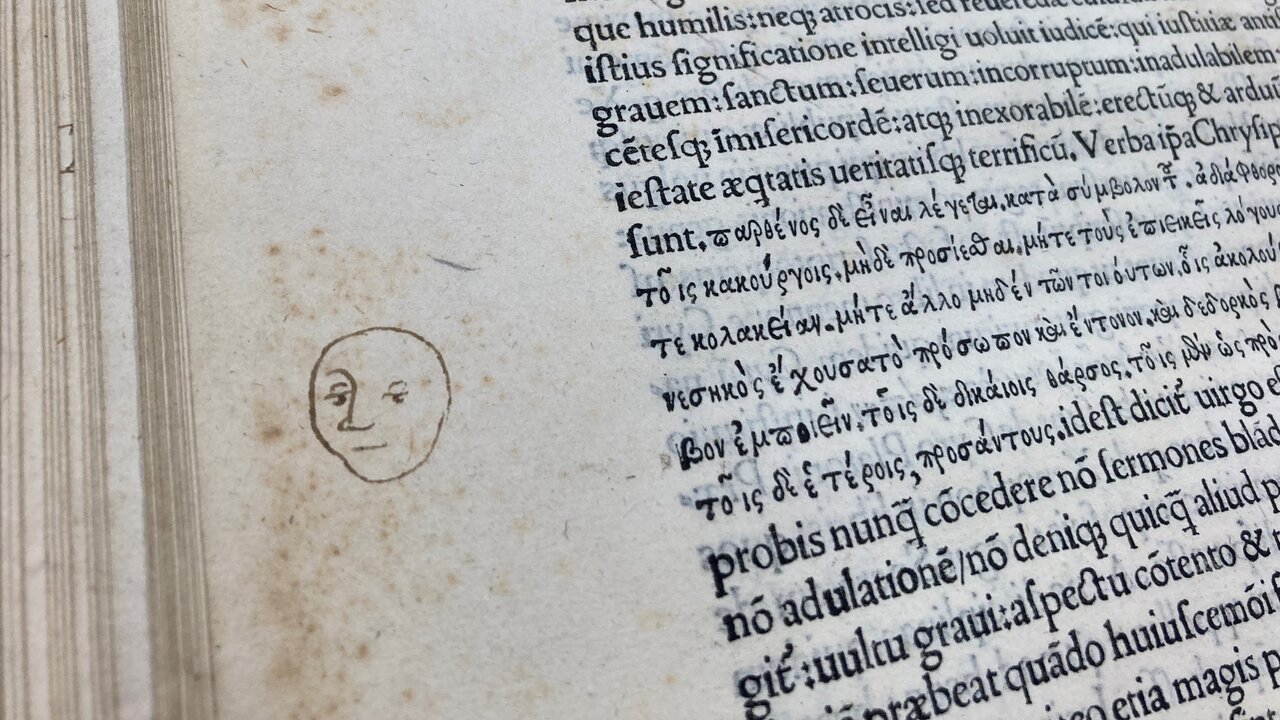 que humilis:neqꝫ atrocis:sed reuerēdæ
istius significatione intelligi uoluit iudicē:qui iustitiæ
grauem:sanctum:seuerum:incorruptum:inadulabilem
cētesqꝫ īmisericordē:atqꝫ inexorabilē:erectūqꝫ & arduū
iestate æqtatis ueritatisqꝫ terrificū. Verba ip̄a Chrysip
sunt. παρθένος δὲ εἶναι λέγεται. κατὰ σύμβολον τ͂. ἀδιάφθορ
το͂ις κακούργοις. μὴδὲ προσίεσθαι. μήτε τοὺς ἐπιεικεῖς λόγου
τε κολακείαν. μήτε ἄλλο μηδέν τῶν τοιόυτων. ὅις ἀκολού
νεσηκὸς ἔχουσα τὸ πρόσωπον καὶ ἔντονον. καὶ δεδορκὸς
βον ἐμποιεῖν. το͂ις δὲ δικάιοις θάρσος. το͂ις μὲν ὡς πρὸ
το͂ις δὲ ἑτέροις, προσάντους. idest dicit̃ uirgo
probis nunq̃ cōcedere nō sermones blād
nō adulationē/nō deniqꝫ quicq̃ aliud
nō aspectu cōtento &
git̃:uultu graui:aspectu cōtento &
præbeat quādo huiuscemōi
etia magis